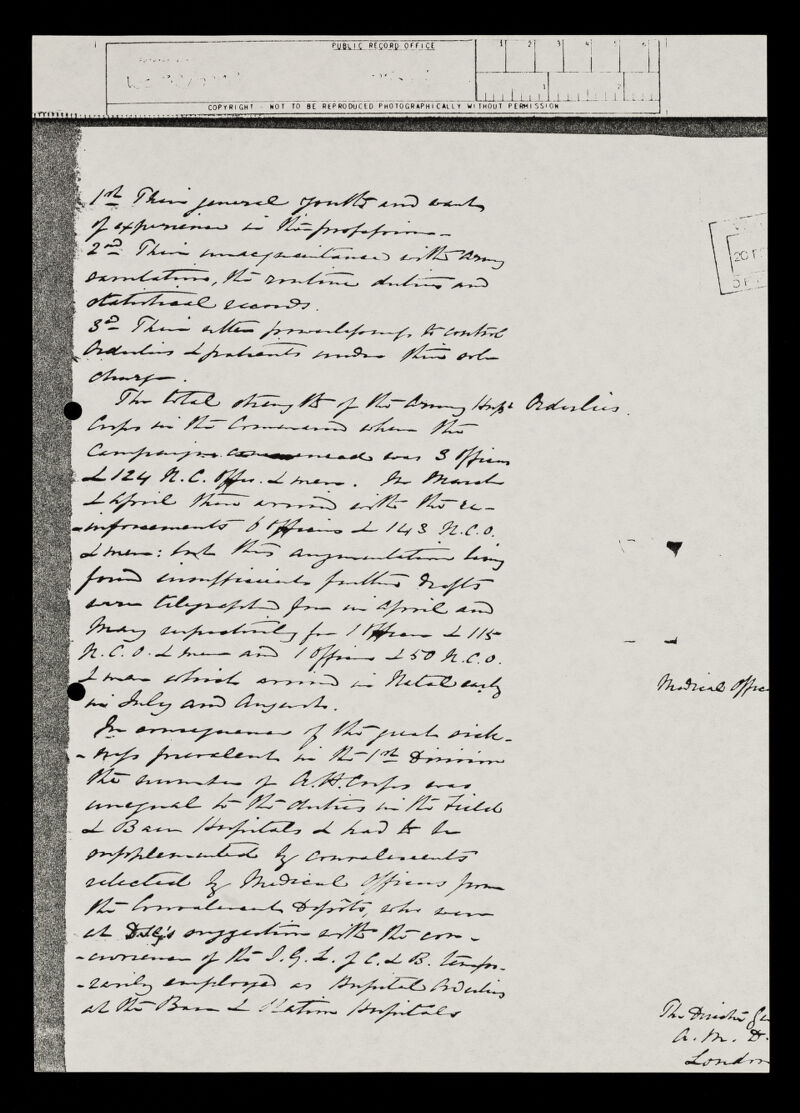 PUBLIC RECORD OFFICE
COPYRIGHT - NOT TO BE REPRODUCED PHOTOGRAPHICALLY WITHOUT PERMISSION
1st Their general youth and want
of experience in the profession -
2nd Their unacquaintance with Army
regulations, the routine duties and
statistical records.
3rd Their utter powerlessness to control
Orderlies & patients under their sole
charge.
The total strength of the Army Hospl Orderlies
Corps in the Command when the
Campaign commenced was 3 Officers
& 124 N.C. Offrs. & men. In March
& April there arrived with the re-
-inforcements 6 Officers & 143 N.C.O.
& men: but this augmentation being
found insufficient further drafts
were telegraphed for in April and
May respectively for 1 Officer & 115
N.C.O. & men and 1 Officer & 50 N.C.O.
& men which arrived in Natal early
in July and August.
In consequence of the great sick-
-ness prevalent in the 1st Division
the number of A.H. Corps was
unequal to the duties in the Field
& Base Hospitals & had to be
supplemented by convalescents
selected by Medical Officers from
the Convalescent Depôts, who were
at suggestion with the con-
-currence of the I.G.L. of C. & B. tempo-
-rarily employed as Hospital Orderlies
at the Base & Station Hospitals
Medical Offic
The Director Ge
A. M. D.
London